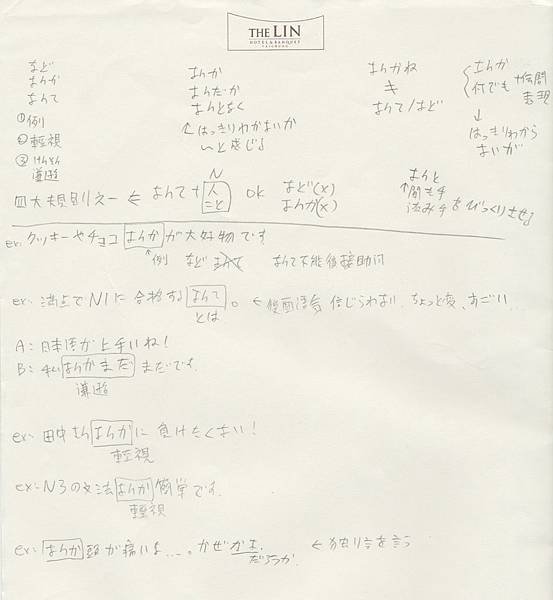 THE LIN
HOTEL & BANQUET
TAICHUNG
など
なんか
なんて
①例
②軽視
③けんそん
謙遜
なんか
なんだか
なんとなく
↑はっきりわからないが
〜と感じる
なんかね
≠
なんて/など
なんか
何でも
↓
はっきりわから
ないが
四大規則之一 ← なんて + 人 こと OK など(x)
N
なんか(x)
なんと
↑聞き手
読み手をびっくりさせる
ex: クッキーやチョコなんかが大好物です
↑例 など なんて なんて不能後接助詞
ex: 満点でN1に合格するなんて。 ← 後面 信じられない、ちょっと変、すごい…
とは
A: 日本語が上手いね!
B: 私なんかまだまだです。
謙遜
ex: 田中さんなんかに負けたくない!
軽視
ex: N3の文法なんか簡単です。
軽視
ex: なんか頭が痛いな....。かぜかな。 ← 独り言を言う
だろうか